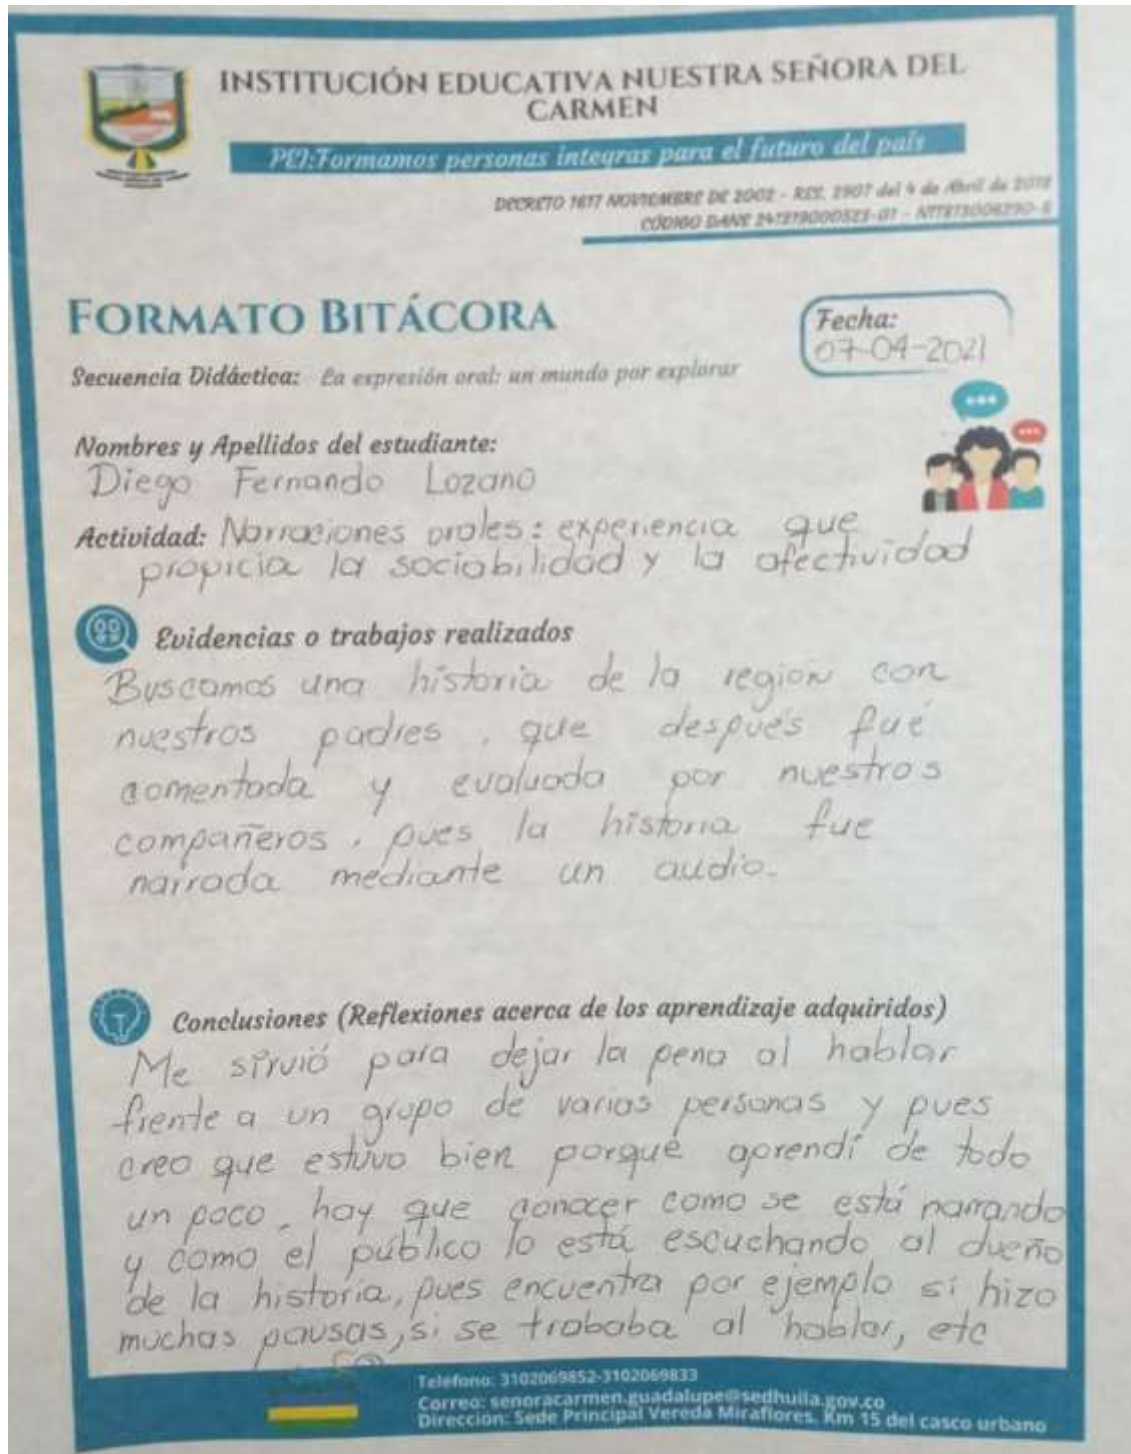 INSTITUCIÓN EDUCATIVA NUESTRA SEÑORA DEL
CARMEN
PEI:Formamos personas integras para el futuro del país
DECRETO 1677 NOVIEMBRE DE 2002 - RES. 2907 del 4 de Abril de 2018
CÓDIGO DANE
FORMATO BITÁCORA
Fecha:
07-04-2021
Secuencia Didáctica: La expresión oral: un mundo por explorar
Nombres y Apellidos del estudiante:
Diego Fernando Lozano
Actividad: Narraciones orales: experiencia que
propicia la sociabilidad y la afectividad
Evidencias o trabajos realizados
Buscamos una historia de la region con
nuestros padres, que después fué
comentada y evaluada por nuestros
compañeros, pues la historia fue
narrada mediante un audio.
Conclusiones (Reflexiones acerca de los aprendizaje adquiridos)
Me sirvió para dejar la pena al hablar
frente a un grupo de varias personas y pues
creo que estuvo bien porque aprendí de todo
un poco, hay que conocer como se está narrando
y como el público lo está escuchando al dueño
de la historia, pues encuentra por ejemplo si hizo
muchas pausas, si se trababa al hablar, etc
Teléfono: 3102069852-3102069833
Correo: senoracarmen.guadalupe@sedhuila.gov.co
Dirección: Sede Principal Vereda Miraflores. Km 15 del casco urbano